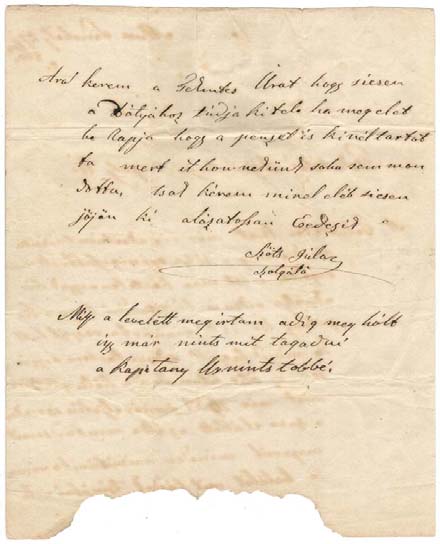 Ara kerem a Tekintes Urat hogy siesen
a Bátyához tudja ki tele ha meg elet
be kapja hogy a penzet is kinél tartat
ta mert it hon nekünk soha sem mon
dotta, tsak kérem minel elöb siesen
jöjön ki alázatossan Esedezik
Szöts Júlia
Szolgáló
Mig a levelett megirtam adig meg hólt
igy mar nints mit tagadni
a kapitany Ur nints többé.